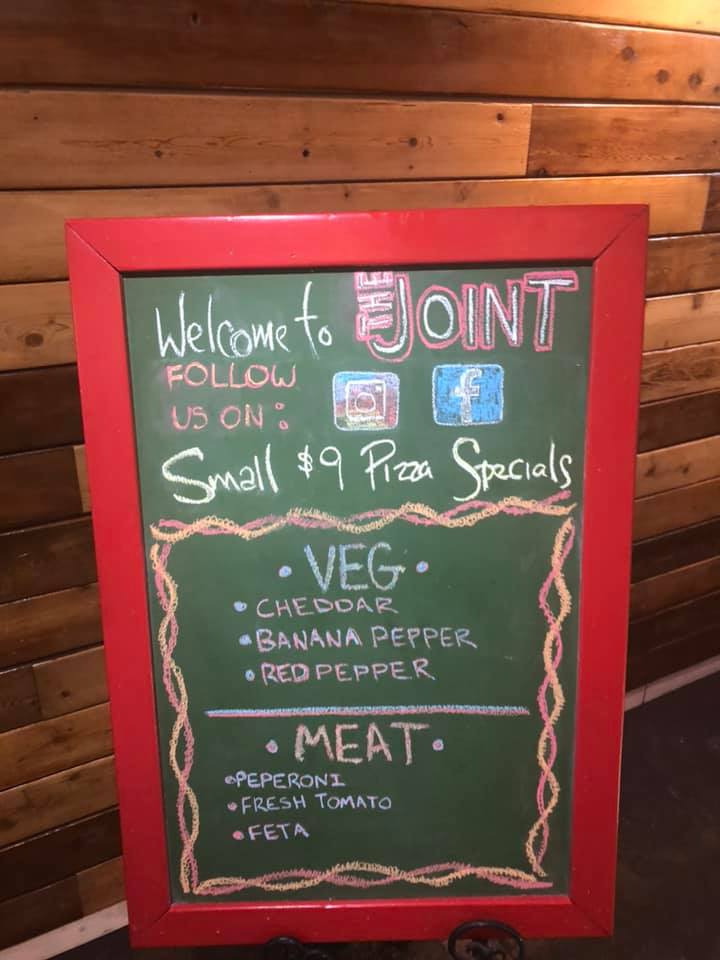 Welcome to THE JOINT
FOLLOW
US ON:
f
Small $9 Pizza Specials
• VEG •
• CHEDDAR
• BANANA PEPPER
• RED PEPPER
• MEAT •
• PEPERONI
• FRESH TOMATO
• FETA